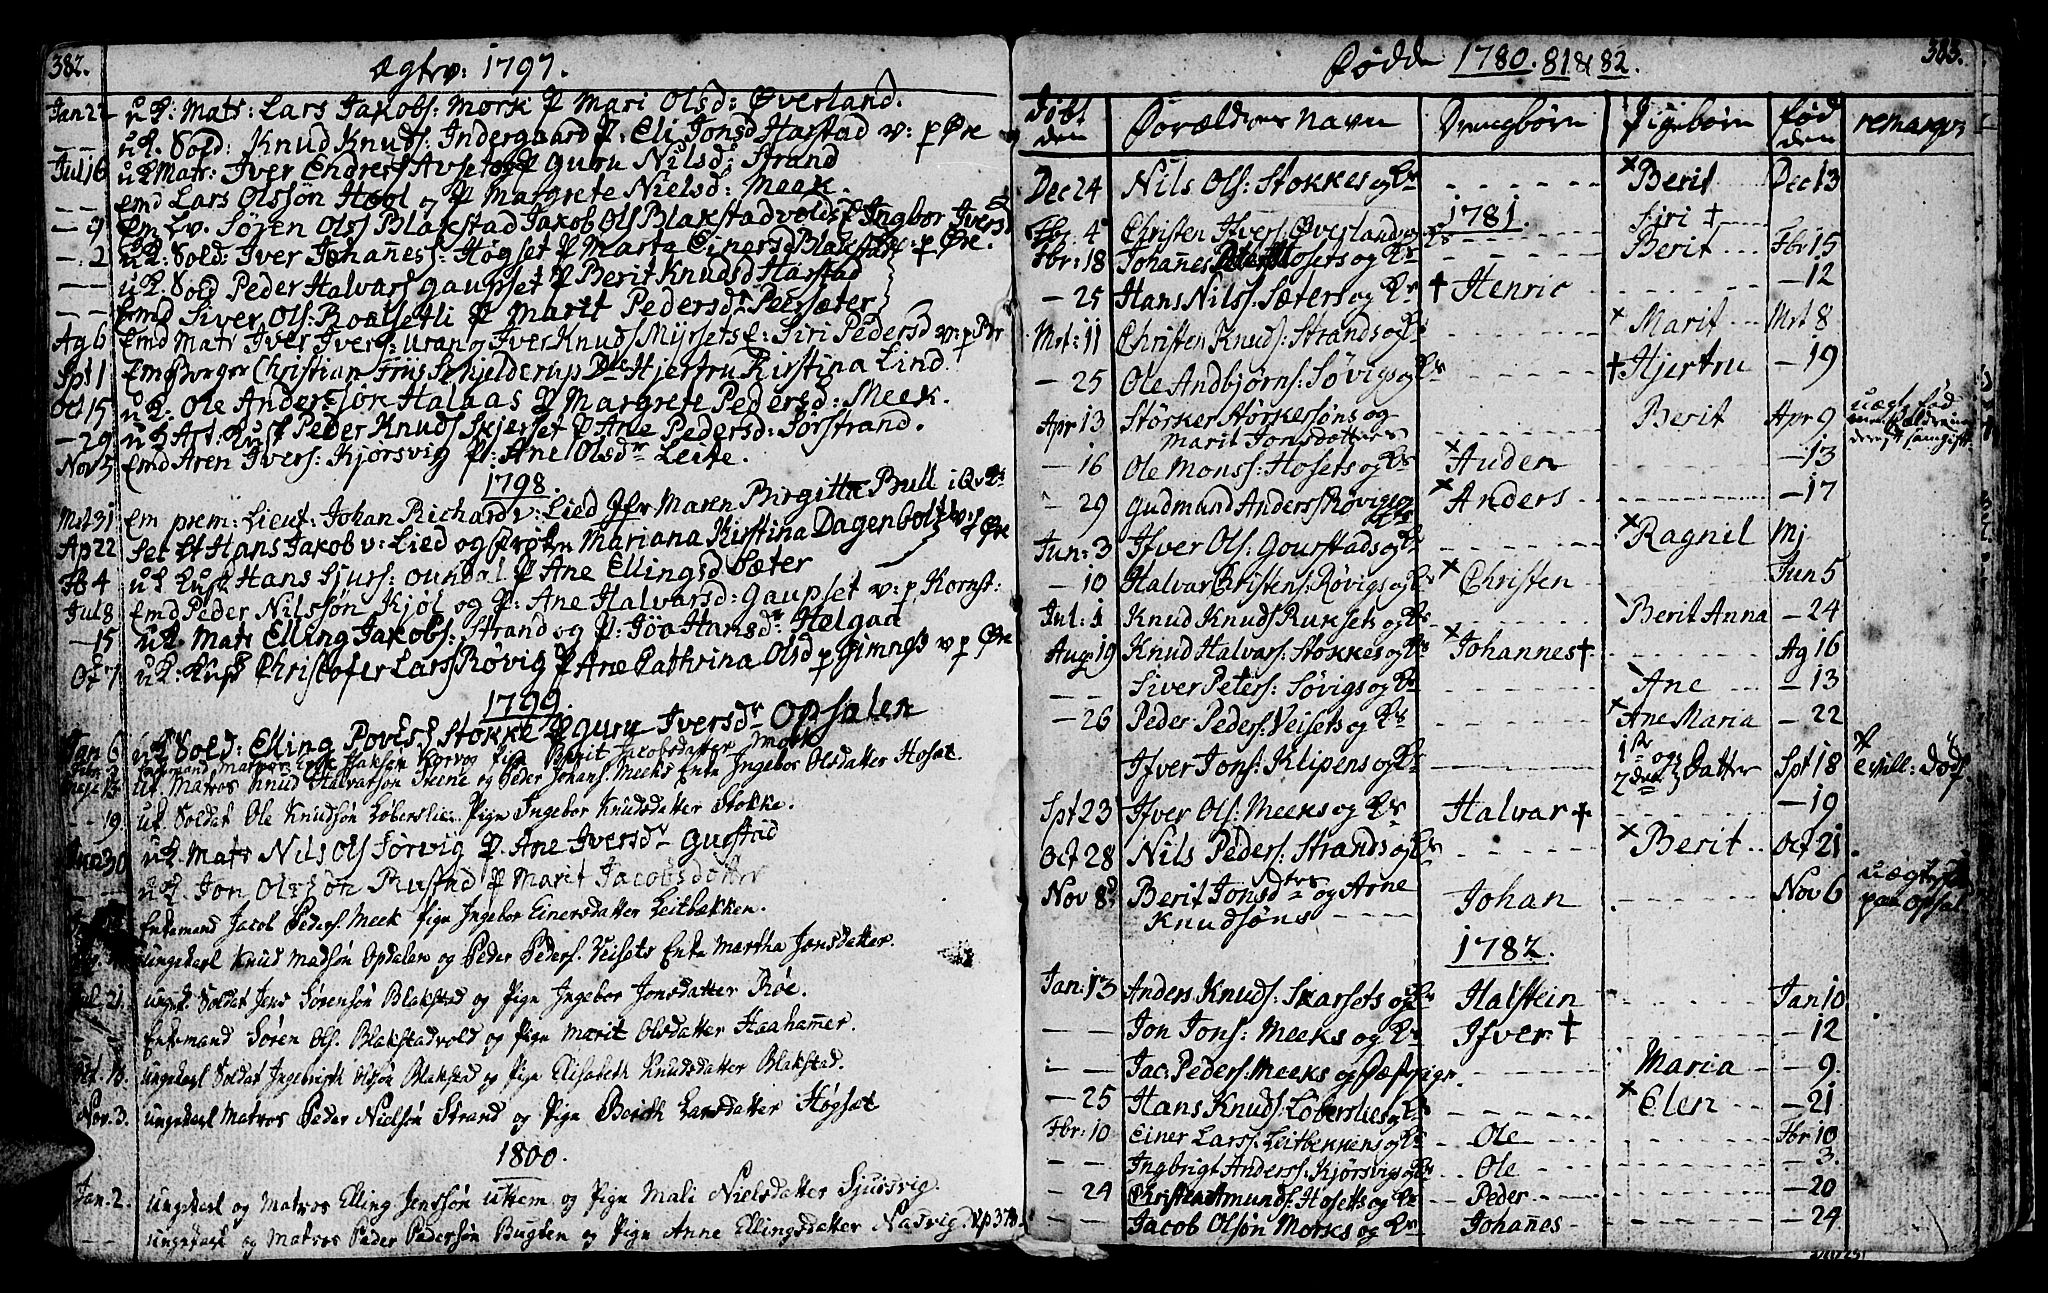 382.
Ægtev: 1797.
Jan 22 uK: Matr: Lars Jakobs: Mørk P Mari Olsd: Øverland.
— — uK. Sold: Knud Knuds: Indergaard P: Eli Jonsd Harstad v: p Øre
Jul 16 uK Matr: Iver Endres: P Guru Nilsd: Strand
— — Emd Lars Olssøn Hool og P Margrete Nielsd: Meek.
— 9 Em Lv. Søren Ols Blakstad Jakob Ols Blakstadvolds P Ingbor Ivers
— 2 uK: Sold: Iver Johañes: Høgset P Marta Einersd Blakstad: p Øre.
— — uK. Sold Peder Halvars Gaupset P Berit Knudsd Harstad
— — Emd Siver Ols: Boalsetli P Marit Pedersdr Peersæter
Ag 6 Emd Matr Iver Ivers: uran og Iver Knuds Myrsets E: Siri Pedersd v: p Br
Spt 1 Em Borger Christian Friis Schjelderup Hjertru Kirstina Lind.
Oct 15 uK: Ole Andersøn Halaas P Margrete Pedersd: Meek.
— 29 uK Art: Kusk Peder Knuds Skjerset P Ane Pedersd: Sørstrand.
Nov 5 Emd Aren Ivers: Kjorsvig P: Ane Olsdr Leite.
1798.
Mrt 31 Em prem: Lieut: Johan Richard v: Lied Jfr Maren Birgitta Bull i Qv
Ap 22 Set Lt Hans Jakob v: Lied og Frøkn Mariana Kirstina Dagenbolt v: p Øre
Fb 4 uK Kusk Hans Sjurs: oundal P Ane Ellingsd Sæter
Jul 8 Emd Peder Nilssøn Kjøl og P: Ane Halvarsd: Gaupset v: p. Kornst:
— 15 uK Matr Elling Jakobs: Strand og P: Jøa Hansdr Helgaa
Oc 7 uK: Kusk Christofer Lars Røvig P Ane Cathrina Olsd p Gimnes v p Øre
1799.
Jan 6 uK Sold: Elling Povels Stokke P Guru Iversdr Opsalen
Enkemand Matros Erik Haksen Korvog Pige Berit Jacobsdatter Mork
uK. Matros Knud Halvarsøn Steene og Peder Johans: Meeks Enke Ingebor Olsdatter Hosæt
— 19. uK Soldat Ole Knudsøn Loberslie Pige Ingebor Knudsdatter Stokke.
30 uK. Matr Nils Ols Sørvig P. Ane Iversdr Gustad
— uK. Jon Olssøn Rustad P Marit Jacobsdotter
Enkemand Jacob Peders. Meek Pige Ingebor Einersdatter Leitbækken.
ungekarl Knud Madsøn Opdalen og Peder Peders. Veisets Enke Martha Jonsdatter.
Jul. 21. ungk. Soldat Jens Sørensøn Blakstad og Pige Ingebor Jonsdatter Røe.
Enkemand Søren Ols. Blakstadvold og Pige Marit Olsdatter Haahamer.
Oct. 13. ungekarl Soldat Ingebrigth Olsøn Blakstad og Pige Elisabeth Knudsdatter Blakstad.
Nov. 3. ungekarl Matros Peder Nielsøn Strand og Pige Berith Larsdatter Høgsæt
1800.
Jan. 2. ungekarl og Matros Elling Jensøn Utkem og Pige Mali Nielsdatter Sjursvig.
— — ungekarl og Matros Peder Pedersøn Bugten og Pige Anne Ellingsdatter Nasvig. v p 378.
383.
Fødde 1780. 81 & 82.
Døbt den Forældrenes Navn Drengbørn Pigebørn fød den remarqver
Dec 24 Nils Ols: Stokkes og Ks - - - × Berit Dec 13
1781.
Fbr: 4 Christen Ifvers: Øverlands og Ks - - - Siri +
Fbr: 18 Johañes Hosets og Ks - - - Berit Fbr 15
— 25 Hans Nils: Sæters og Ks + Henric - - - — 12
Mrt: 11 Christen Knuds: Strands og Ks - - - × Marit Mrt 8
— 25 Ole Andbjørns: Søvigs og Ks - - - + Hjertru — 19
Apr 13 Størker Størkersøns og Marit Jonsdatters - - - Berit Apr 9 uægt. fød
— 16 Ole Monss: Hosets og Ks × Auden - - - — 13
— 29 Gudmund Anders Røvigs og Ks × Anders - - - — 17
Jun: 3 Ifver Ols: Gourstads og Ks - - - × Ragnil Mj
— 10 Halvar Christens: Røvigs og Ks × Christen - - - Jun 5
Jul: 1 Knud Knuds Ruksets og Ks - - - Berit Anna — 24
Aug: 19 Knud Halvars: Stokkes og Ks × Johannes + - - - Ag 16
Siver Peters: Søvigs og Ks - - - Ane — 13
— 26 Peder Peders: Veisets og Ks - - - × Ane Maria — 22
Ifver Jons: Klipens og Ks - - - 1ste og 2den Datter Spt 18 tvill: død
Spt 23 Ifver Ols: Meeks og Ks Halvar + - - - — 19
Oct 28 Nils Peders: Strands og Ks - - - × Berit Oct 21
Nov 8 Berit Jonsdtrs og Arne Knudsøns Johan - - - Nov 6 uægte
paa Opsal
1782.
Jan: 13 Anders Knuds: Skarsets og Ks Halstein - - - Jan 10
— — Jon Jons: Meeks og Ks Ifver + - - - — 12
— — Jac: Peders: Meeks og Maria — 9.
— 25 Hans Knuds: Loberslies og Ks - - - × Elen — 21
Fbr: 10 Einer Larss: Leitbekkens og Ks Ole - - - Fbr 10
— — Ingbrigt Anderss: Kjørsvigs og Ks Ole - - - — 3.
— 24 Christen Amunds: Hosetts og Ks Peder - - - — 20
— — Jacob Olsøn Morks og Ks Johañes - - - — 24